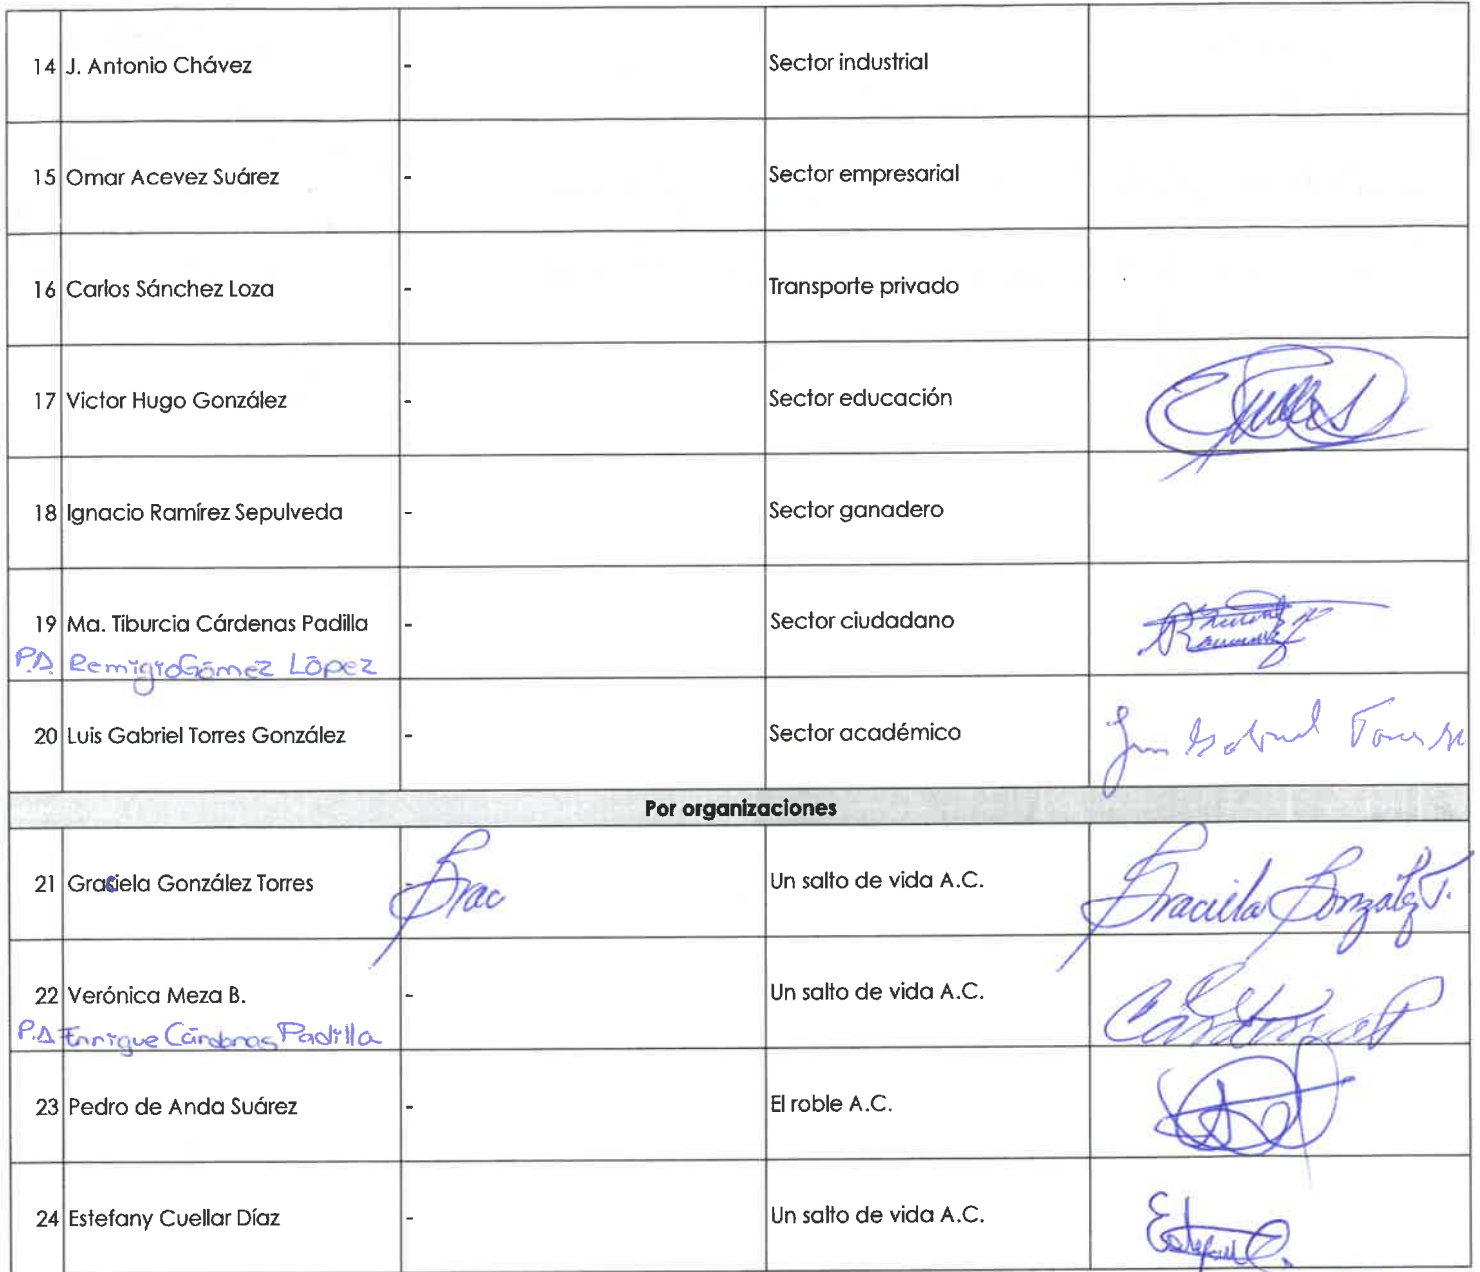 14 J. Antonio Chávez - Sector industrial
15 Omar Acevez Suárez - Sector empresarial
16 Carlos Sánchez Loza - Transporte privado
17 Victor Hugo González - Sector educación
18 Ignacio Ramírez Sepulveda - Sector ganadero
19 Ma. Tiburcia Cárdenas Padilla - Sector ciudadano
P.A Remigio Gómez López
20 Luis Gabriel Torres González - Sector académico
Por organizaciones
21 Graciela González Torres - Grac Un salto de vida A.C. Graciela González T.
22 Verónica Meza B. - Un salto de vida A.C.
P.A Enrique Cárdenas Padilla
23 Pedro de Anda Suárez - El roble A.C.
24 Estefany Cuellar Díaz - Un salto de vida A.C.